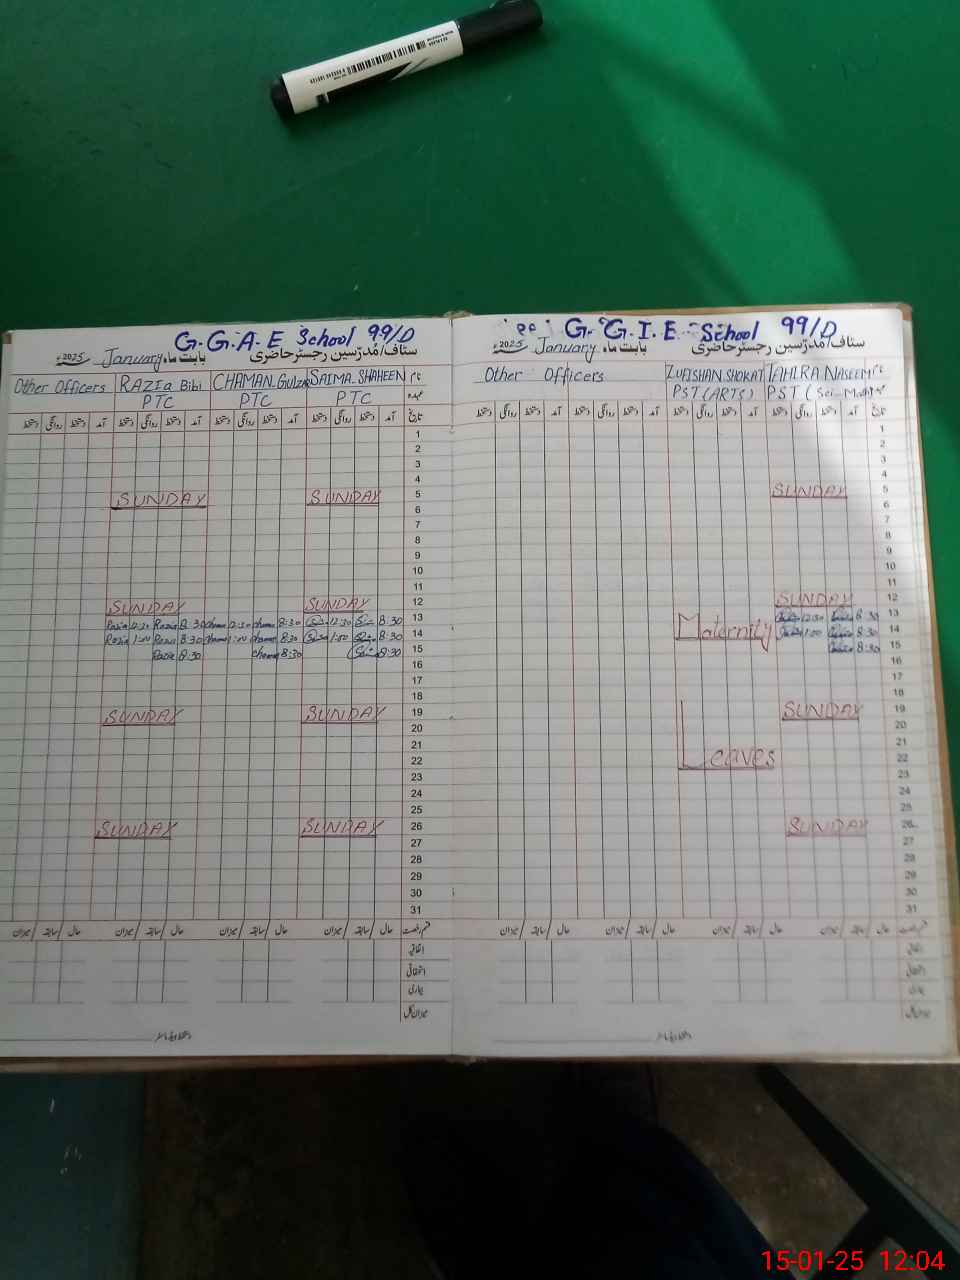 G.G.A.E School 99/D
سٹاف/مدرسین رجسٹر حاضری بابت ماہ January 2025ء
Other Officers RAZIa Bibi CHAMAN. Gulzar SAIMA. SHAHEEN نام
PTC PTC PTC عہدہ
دستخط روانگی دستخط آمد دستخط روانگی دستخط آمد دستخط روانگی دستخط آمد تاریخ
1
2
3
4
SUNDAY SUNDAY 5
6
7
8
9
10
11
SUNDAY SUNDAY 12
Razia 12:30 Razia 8:30 chama 12:30 chama 8:30 12:30 8:30 13
Razia 1:00 Razia 8:30 chama 1:00 chama 8:30 1:00 8:30 14
Razia 8:30 chama 8:30 8:30 15
16
17
18
SUNDAY SUNDAY 19
20
21
22
23
24
25
SUNDAY SUNDAY 26
27
28
29
30
31
میزان سابقہ حال میزان سابقہ حال میزان سابقہ حال میزان سابقہ حال قسم رخصت
اتفاقی
بیماری
میزان کل
G.G.I.E School 99/D
سٹاف/مدرسین رجسٹر حاضری بابت ماہ January 2025ء
Other Officers ZUFISHAN SHOKAT TAHIRA NASEEM نام
PST (ARTS) PST (Sci-Math) عہدہ
دستخط روانگی دستخط آمد دستخط روانگی دستخط آمد دستخط روانگی دستخط آمد تاریخ
1
2
3
4
SUNDAY 5
6
7
8
9
10
11
SUNDAY 12
12:30 8:30 13
Maternity 1:00 8:30 14
8:30 15
16
17
18
SUNDAY 19
20
21
Leaves 22
23
24
25
SUNDAY 26
27
28
29
30
31
میزان سابقہ حال میزان سابقہ حال میزان سابقہ حال میزان سابقہ حال قسم رخصت
اتفاقی
بیماری
میزان کل
15-01-25 12:04